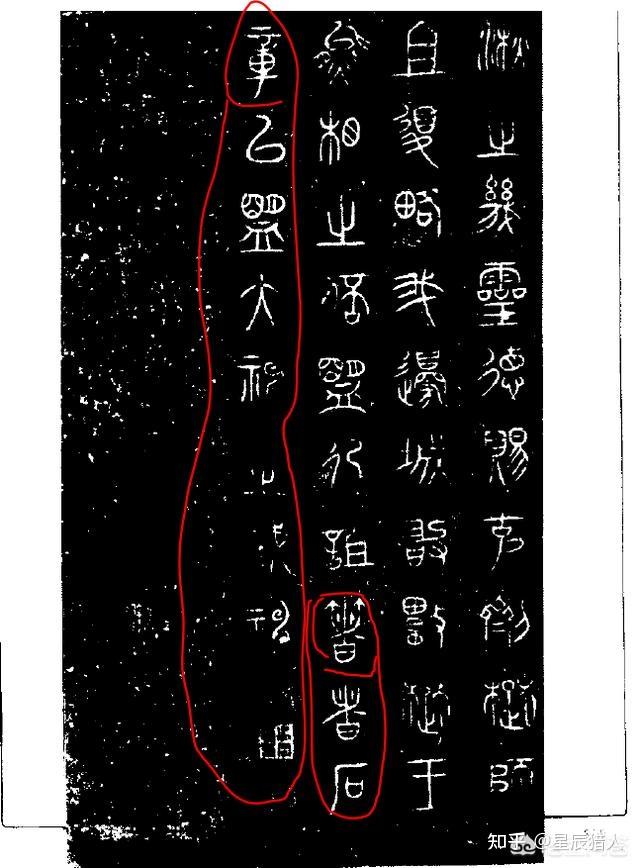 湫之幾靈德賜克劑楚師
且復略我邊城敢數楚王
熊相之倍盟犯詛箸者石
章以盟大神之威神
知乎 @星辰猎人